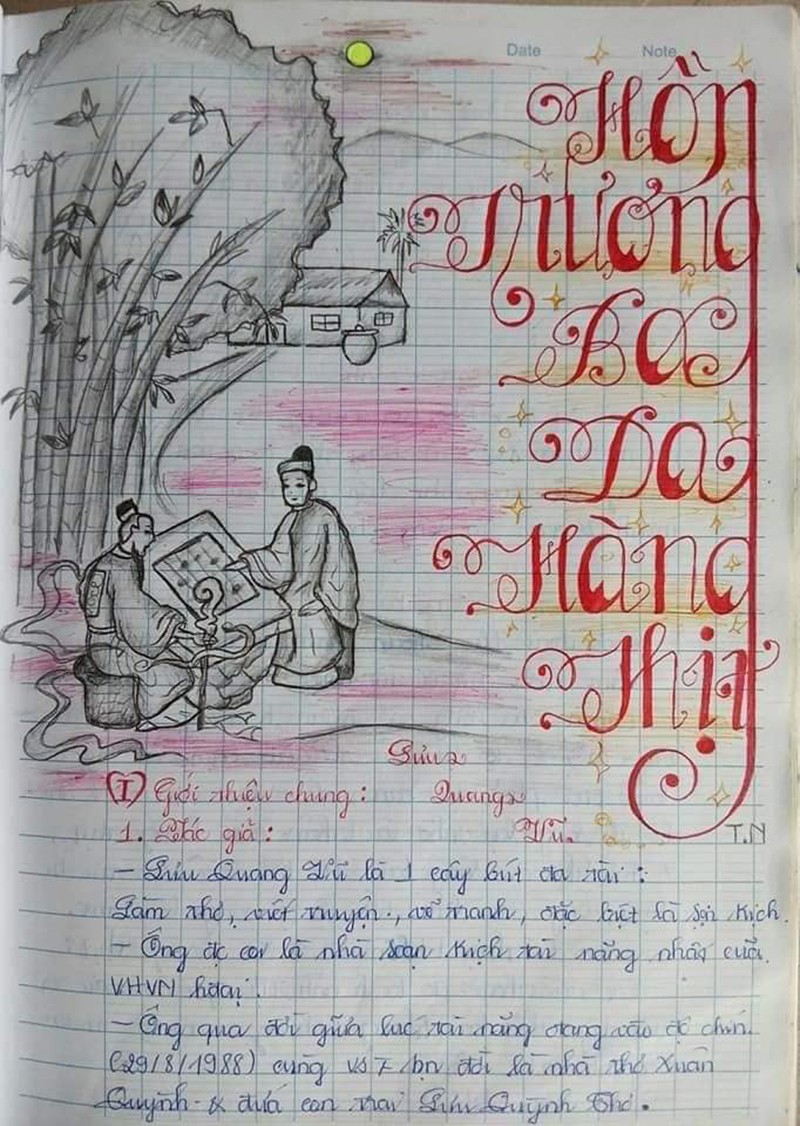 Date Note
Hồn
Trương
Ba
Da
Hàng
Thịt
Lưu
I Giới thiệu chung: Quang
1. Tác giả: Vũ.
T.N
– Lưu Quang Vũ là 1 cây bút đa tài:
Làm thơ, viết truyện, vẽ tranh, đặc biệt là soạn kịch.
– Ông đc coi là nhà soạn kịch tài năng nhất của
VHVN hđại.
– Ông qua đời giữa lúc tài năng đang vào độ chín
(29/8/1988) cùng vs bạn đời là nhà thơ Xuân
Quỳnh & đứa con trai Lưu Quỳnh Thơ.